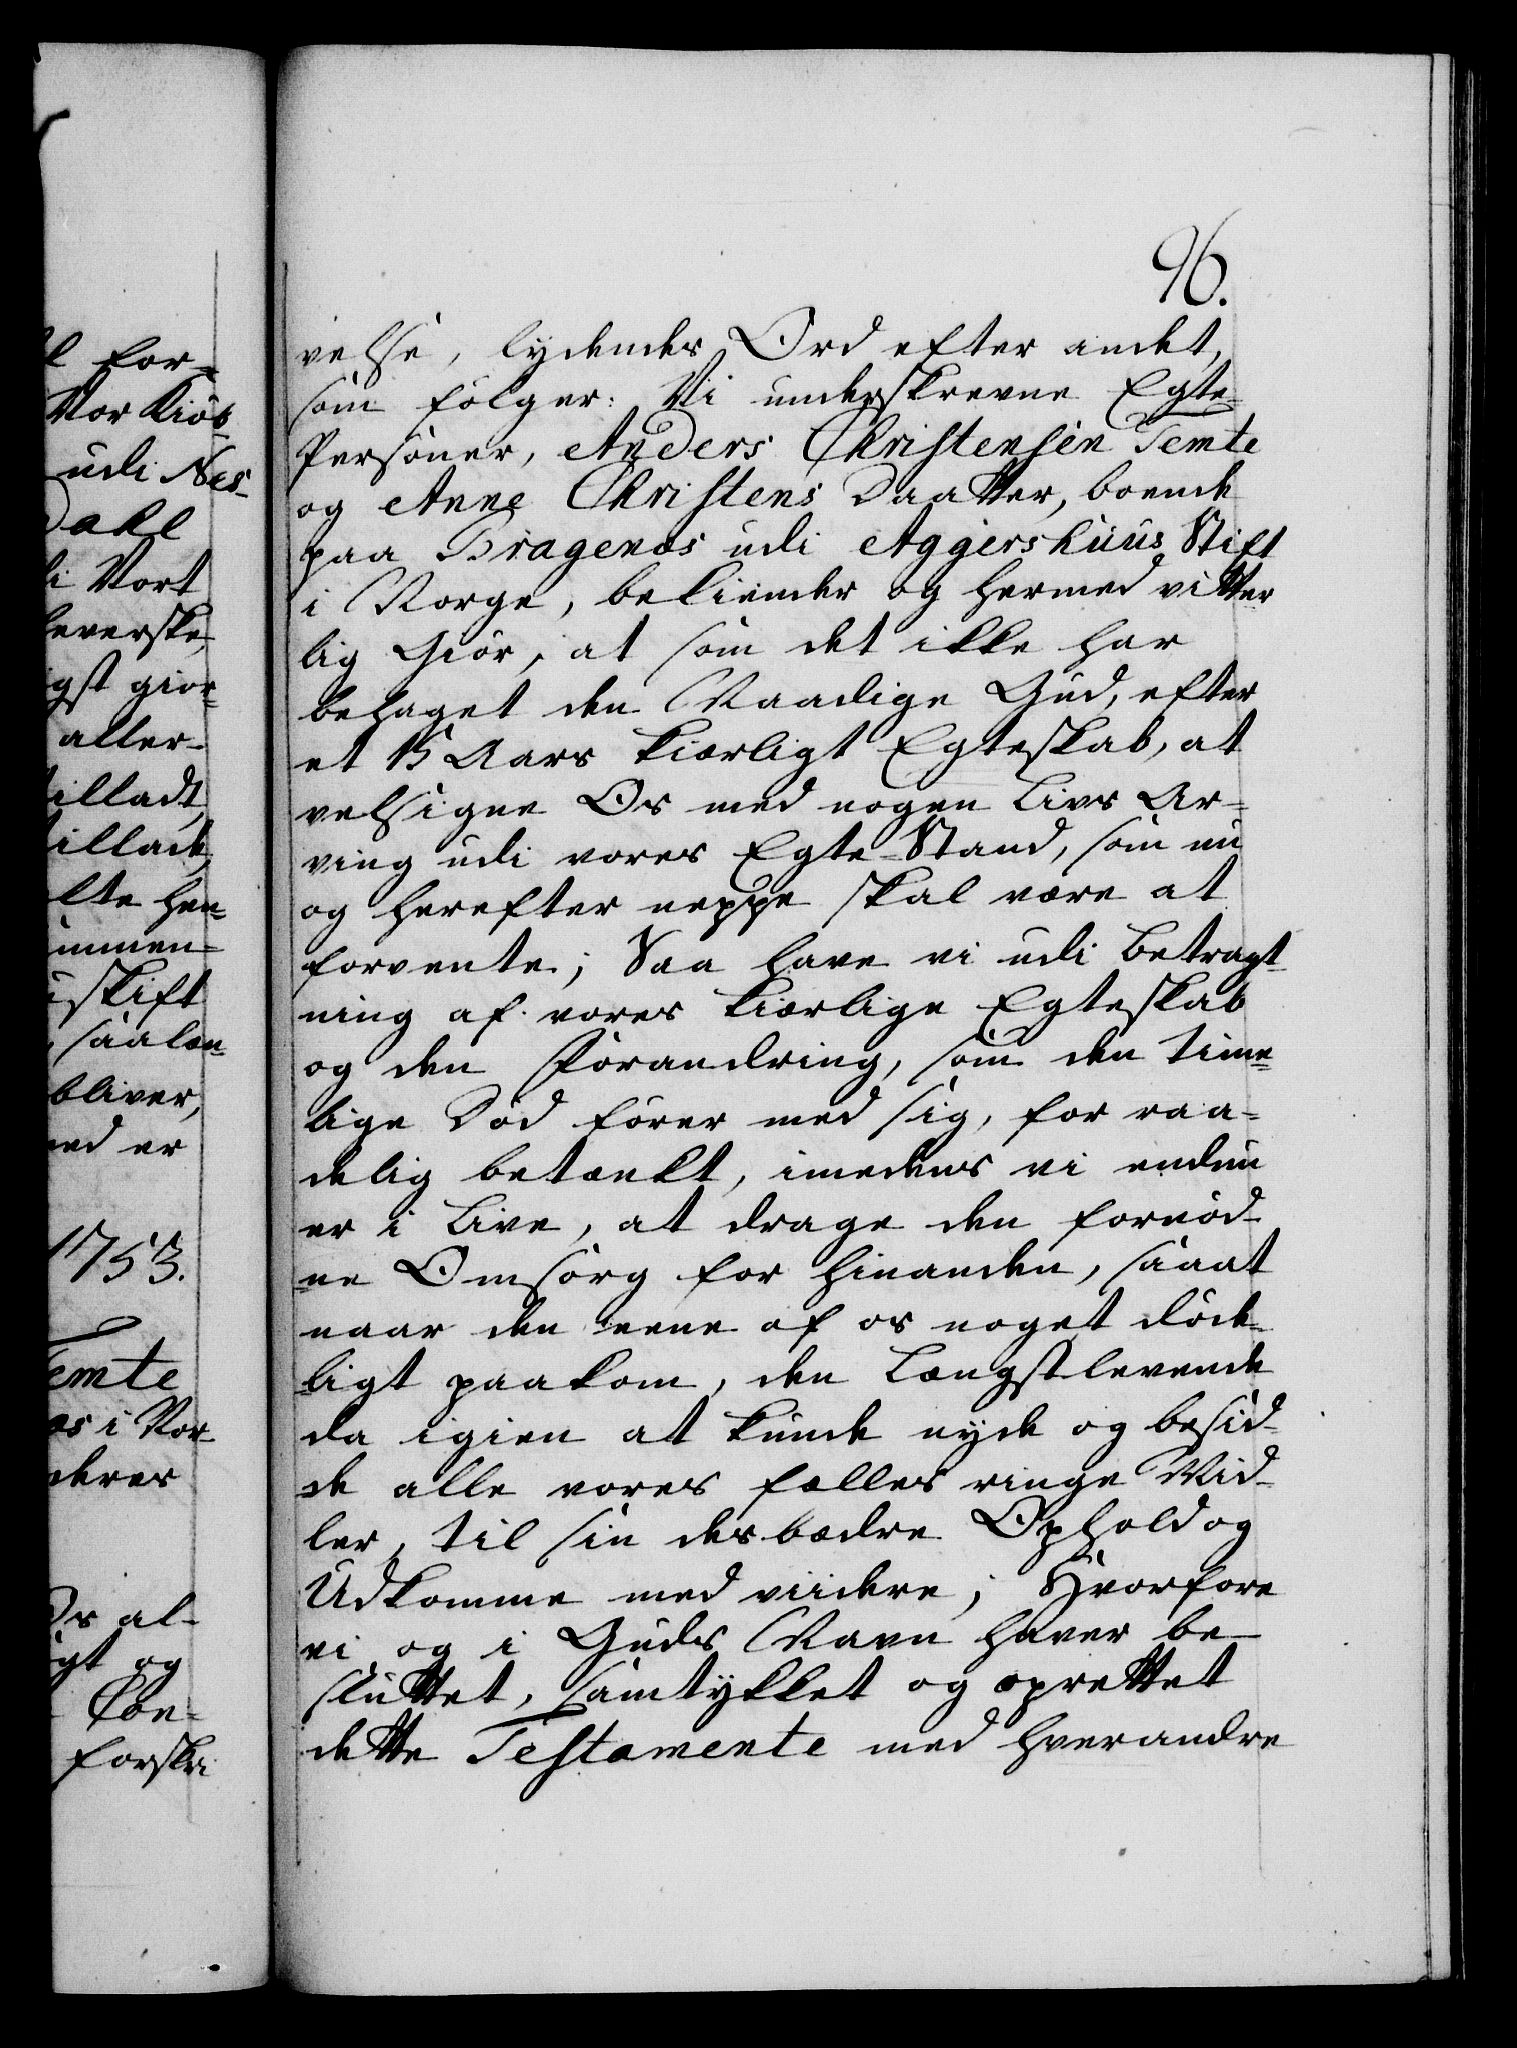 l for-
Vor Kiøb-
udi Nes-
Dahl
i Vort
leverske,
igst giør-
aller-
tilladt,
tillade,
lte hen-
ammen-
uskift
, saalæn-
bliver,
ned er
1753.
Temte
æs i Nor-
deres
Os al-
igt og
Con-
forskri-
96.
velse, lydendes Ord efter andet,
som følger: Vi underskrevne Egte-
Personer, Anders Christensen Temte
og Anne Christens Daatter, boende
paa Bragenæs udi Aggershuus Stift
i Norge, bekiender og hermed vitter-
lig Giør, at som det ikke har
behaget den Naadige Gud, efter
et 15 Aars kiærligt Egteskab, at
velsigne Os med nogen Livs Ar-
ving udi vores Egte-Stand, som nu
og herefter neppe skal være at
forvente; Saa have vi udi Betragt-
ning af vores kiærlige Egteskab
og den Forandring, som den time-
lige Død fører med sig, for raa-
delig betænkt, imedens vi endnu
er i Live, at drage den fornød-
ne Omsorg for hinanden, saaat
naar den eene af os noget døde-
ligt paakom, den Længstlevende
da igien at kunde nyde og besid-
de alle vores fælles ringe Mid-
ler, til sin desbædre Ophold og
Udkomme med viidere; Hvorfore
vi og i Guds Navn haver be-
sluttet, samtykket og oprettet
dette Testamente med hverandre